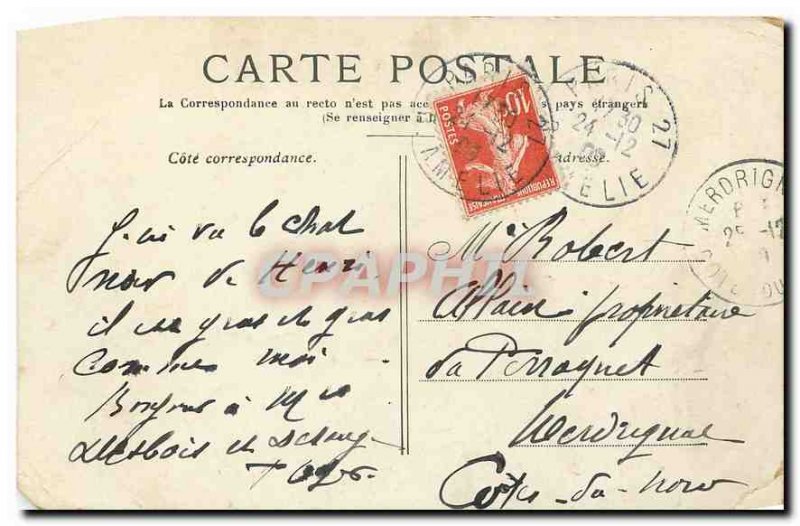 CARTE POSTALE
La Correspondance au recto n'est pas acc s pays étrangers
(Se renseigner à
Côté correspondance.
adresse.
10
POSTES
REPUBLIQUE FRANÇAISE
AMELIE
PARIS 27
30
24-12
09
MELIE
MERDRIGN
25-12
J'ai vu le chat
noir de Henri
il est gros et gras
comme moi
Bonjour à Mrs
Desbois et
Mr Robert
Allain propriétaire
du Perroquet
Merdrignac
Côtes-du-Nord
CPAPHIL